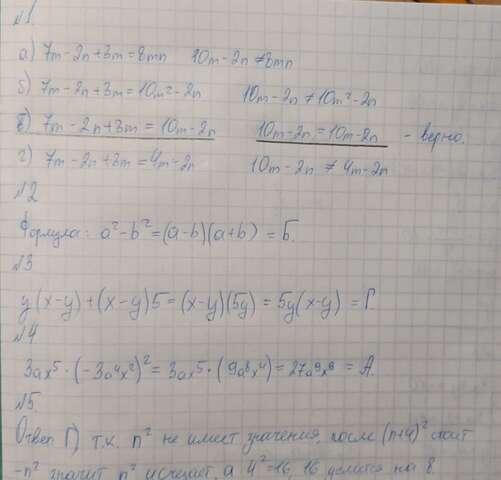 №1
а) 7m-2n+3m=8mn 10m-2n≠8mn
б) 7m-2n+3m=10m²-2n 10m-2n≠10m²-2n
в) 7m-2n+3m=10m-2n 10m-2n=10m-2n - верно.
г) 7m-2n+3m=4m-2n 10m-2n≠4m-2n
№2
Формула: a²-b²=(a-b)(a+b) = Б.
№3
y(x-y)+(x-y)5=(x-y)(5y)=5y(x-y) = Г
№4
3ax⁵·(-3a⁴x²)²=3ax⁵·(9a⁸x⁴)=27a⁹x⁹ = А.
№5.
Ответ Г), т.к. n² не имеет значения, после (n+4)² стоит
-n² значит n² исчезает, а 4²=16, 16 делится на 8.